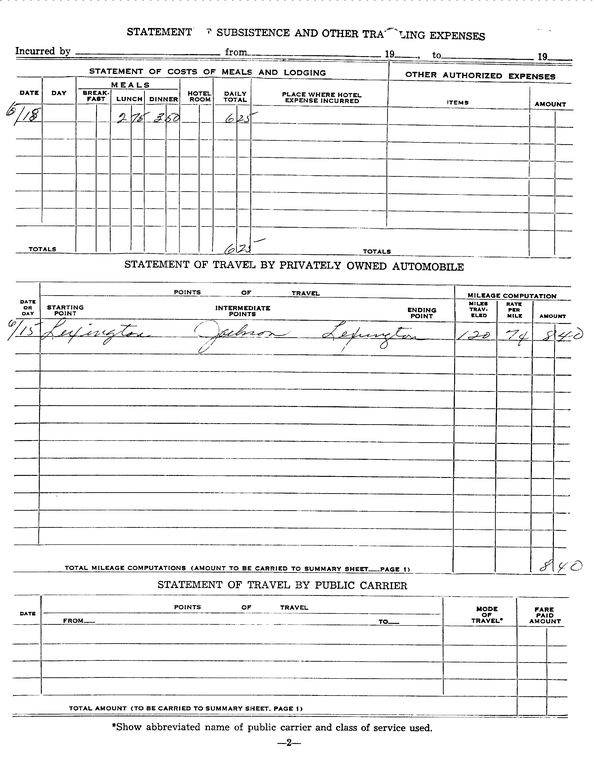 STATEMENT SUBSISTENCE AND OTHER TRA LING EXPENSES
Incurred by from 19 , to 19
STATEMENT OF COSTS OF MEALS AND LODGING OTHER AUTHORIZED EXPENSES
DATE DAY MEALS BREAK-FAST LUNCH DINNER HOTEL ROOM DAILY TOTAL PLACE WHERE HOTEL EXPENSE INCURRED ITEMS AMOUNT
6/18 2 75 3 50 6 25
TOTALS 6 25 TOTALS
STATEMENT OF TRAVEL BY PRIVATELY OWNED AUTOMOBILE
POINTS OF TRAVEL MILEAGE COMPUTATION
DATE OR DAY STARTING POINT INTERMEDIATE POINTS ENDING POINT MILES TRAV-ELED RATE PER MILE AMOUNT
6/15 Lexington Jackson Lexington 120 7¢ 8 40
TOTAL MILEAGE COMPUTATIONS (AMOUNT TO BE CARRIED TO SUMMARY SHEET—PAGE 1) 8 40
STATEMENT OF TRAVEL BY PUBLIC CARRIER
DATE POINTS OF TRAVEL MODE OF TRAVEL* FARE PAID AMOUNT
FROM— TO—
TOTAL AMOUNT (TO BE CARRIED TO SUMMARY SHEET, PAGE 1)
*Show abbreviated name of public carrier and class of service used.
—2—